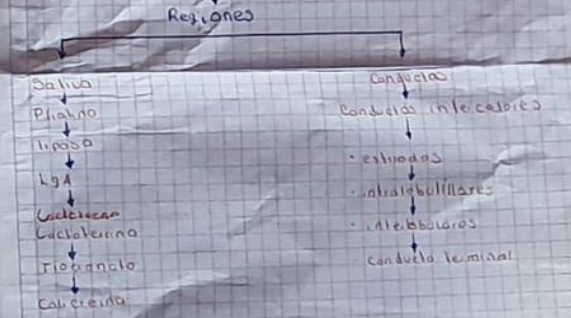 Regiones
Saliva
Ptialino
lipasa
IgA
Lactoferrina
Tiocianato
Calicreina
Conductos
Conductos intercalares
· estriados
· intralobulillares
· interlobulares
conducto terminal